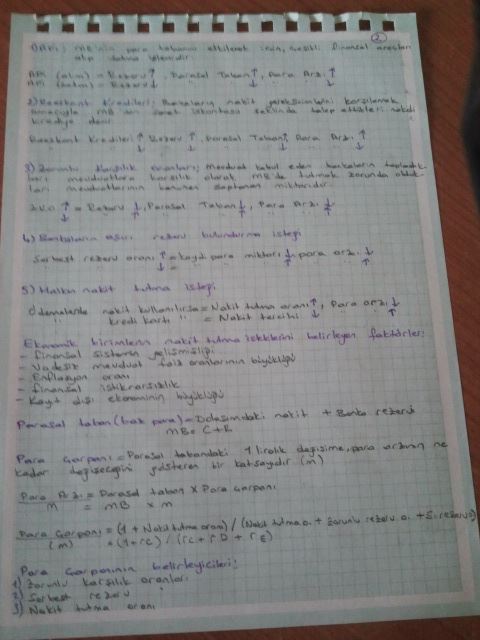 2
1) APİ; MB'nin para tabanını etkilemek için, çeşitli finansal araçları
alıp satma işlemidir.
APİ (alım) = Rezerv ↑, Parasal Taban ↑, Para Arzı ↑
APİ (satım) = Rezerv ↓, ↓, ↓
2) Reeskont Kredileri; Bankaların nakit gereksinimlerini karşılamak
amacıyla MB'den senet iskontosu şeklinde talep ettikleri nakdi
krediye denir.
Reeskont Kredileri ↑ Rezerv ↑, Parasal Taban ↑ Para Arzı ↑
↓ ↓ ↓ ↓
3) Zorunlu Karşılık oranları; Mevduat kabul eden bankaların topladık-
ları mevduatlara karşılık olarak MB'de tutmak zorunda olduk-
ları mevduatlarının kanunen saptanan miktarıdır.
Z.K.O ↑ = Rezerv ↓, Parasal Taban ↓, Para Arzı ↓
↓ ↑ ↑ ↑
4) Bankaların aşırı rezerv bulundurma isteği
Serbest rezerv oranı ↑ = kaydi para miktarı ↓, para arzı ↓
↓ = ↑ ↑
5) Halkın nakit tutma isteği
Ödemelerde nakit kullanılırsa = Nakit tutma oranı ↑, Para arzı ↓
kredi kartı " = Nakit tercihi ↓ ↑
Ekonomik birimlerin nakit tutma isteklerini belirleyen faktörler:
- Finansal sistemin gelişmişliği
- Vadesiz mevduat faiz oranlarının büyüklüğü
- Enflasyon oranı
- Finansal istikrarsızlık
- Kayıt dışı ekonominin büyüklüğü
Parasal taban (baz para) = Dolaşımdaki nakit + Banka rezervi
MB = C + R
Para Çarpanı = Parasal tabandaki 1 liralık değişime, para arzının ne
kadar değişeceğini gösteren bir katsayıdır (m)
Para Arzı = Parasal taban x Para Çarpanı
M = MB x m
Para Çarpanı = (1 + Nakit tutma oranı) / (Nakit tutma o. + Zorunlu rezerv o. + S. rezerv o)
(m) = (1 + rC) / (rC + rD + rE)
Para Çarpanının belirleyicileri:
1) Zorunlu karşılık oranları
2) Serbest rezerv
3) Nakit tutma oranı